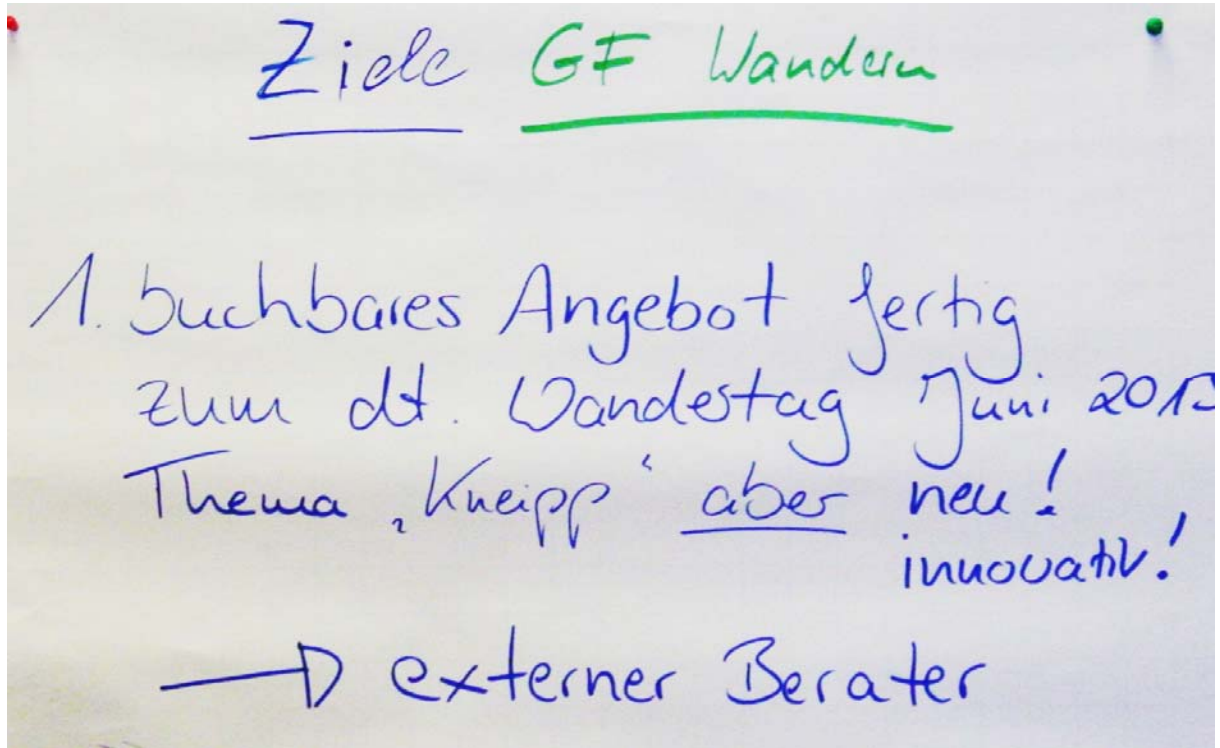 Ziele GF Wandern
1. buchbares Angebot fertig
zum dt. Wandestag Juni
Thema „Kneipp“ aber neu!
innovativ!
→ externer Berater